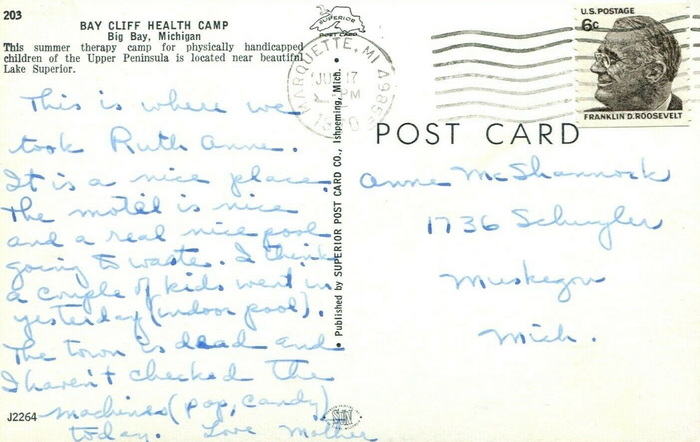 203
BAY CLIFF HEALTH CAMP
Big Bay, Michigan
This summer therapy camp for physically handicapped
children of the Upper Peninsula is located near beautiful
Lake Superior.
This is where we
took Ruth Anne.
It is a nice place.
The motel is nice
and a real nice pool
going to waste. I think
a couple of kids went in
yesterday (indoor pool).
The town is dead and
I haven't checked the
machines (pop, candy)
today. Love Mother
J2264
• Published by SUPERIOR POST CARD CO., Ishpeming, Mich. •
SUPERIOR
POST CARD
MARQUETTE, MI
17
PM
U.S. POSTAGE
6c
FRANKLIN D. ROOSEVELT
POST CARD
Anne McShannock
1736 Schuyler
Muskegon
Mich.